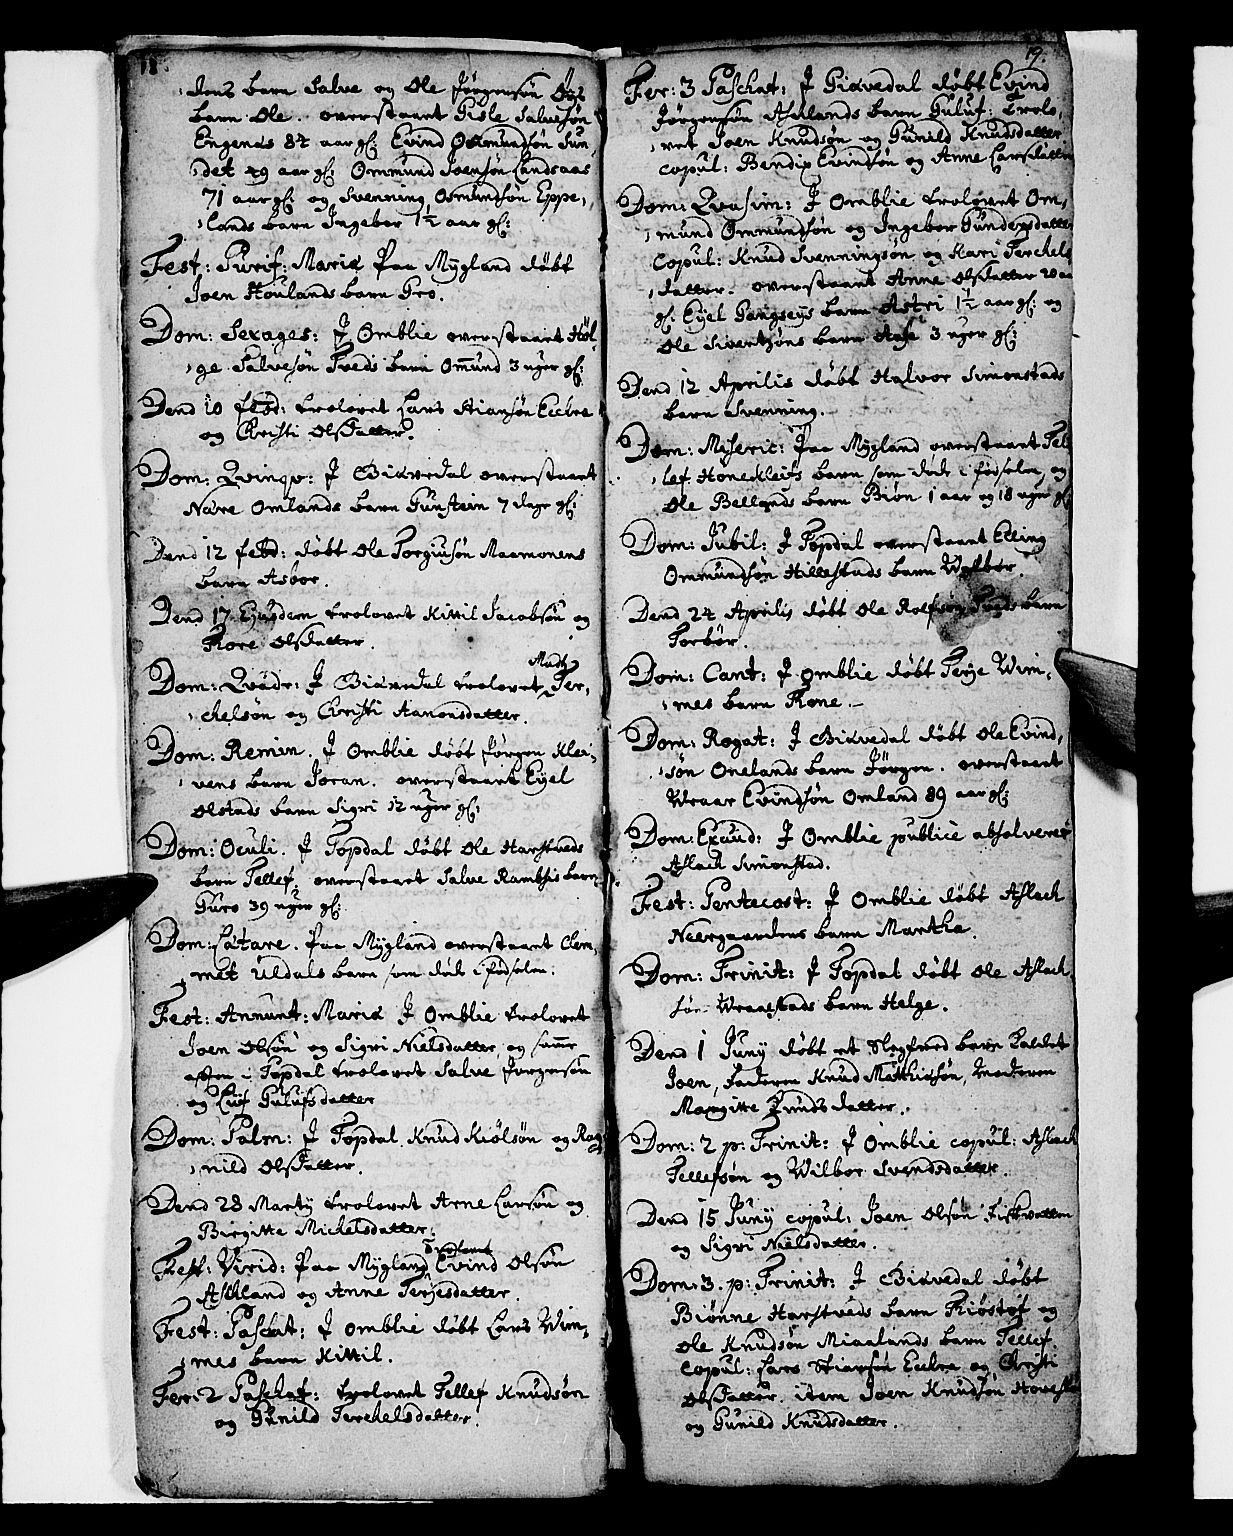 18.
dens barn Salve og Ole Jørgensøn
barn Ole. overstaaet Gisle Salvesøn
Engenæs 84 aar gl: Evind Osmundsøn Sun
det 49 aar gl: Ommund Joensøn Landsaas
71 aar gl: og Svenning Osmundsøn Eppe,
lands barn Ingebor 1½ aar gl:
Fest: Purif: Mariæ Paa Mygland døbt
Joen Houlands barn Gro.
Dom: Sexages: J Omblie overstaaet Høl-
ge Salvesøn Tveds barn Omund 3 uger gl:
Dend 10 febr: trolovet Lars Stiansøn Eechre
og Christi Olsdatter.
Dom: Qvinqv: J Giævedal overstaaet
Nare Omlands barn Gunstein 7 dage gl:
Dend 12 febr: døbt Ole Torgiusøn Maamonens
barn Asbor.
Dend 17 Ejusdem trolovet Kittil Jacobsøn og
Thore Olsdatter.
Madtz
Dom: Qvadr: J Giævedal trolovet Ter-
chelsøn og Christi Aanonsdatter.
Dom: Remin. J Omblie døbt Jørgen Klei-
vens barn Joran. overstaaet Eyel
Olstads barn Sigri 12 uger gl:
Dom: Oculi. J Topdal døbt Ole Harstveds
barn Tellef, overstaaet Salve Ramses barn
Guro 39 uger gl:
Dom: Lætare. Paa Mygland overstaaet Clem-
met Uldals barn som døde i fødselen.
Fest: Annunt: Mariæ J Omblie trolovet
Joen Olsøn og Sigri Nielsdatter, og samme
aften i Topdal trolovet Salve Jørgensøn
og Liuf Gulufsdatter
Dom: Palm: J Topdal Knud Kiølsøn og Rag-
nild Olsdatter.
Dend 28 Martij trolovet Arne Larsøn og
Birgitte Michelsdatter.
trolovet
Fest: Virid: Paa Mygland Evind Olsøn
Aschland og Anne Terjesdatter.
Fest: Paschat: J Omblie døbt Lars Wim-
mes barn Kittil.
Fer: 2 Paschat: trolovet Tellef Knudsøn
og Gunild Terchelsdatter.
19.
Fer: 3 Paschat: J Giævedal døbt Evind
Jørgensøn Aslands barn Guluf. trolo,
vet Joen Knudsøn og Gunild Knudsdatter
copul: Bendix Evindsøn og Anne Larsdatter
Dom: Qvasim: J Omblie trolovet Om-
mund Ommundsøn og Ingebor Gundersdatter
Copul: Knud Svenningsøn og Karri Terchels
datter. overstaaet Anne Olsdatter 20 aar
gl: Eyel Gangseys barn Astri 1½ aar gl: og
Ole Sivertsøns barn Aase 3 uger gl:
Dend 12 Aprilis døbt Halvor Simonstads
barn Svenning.
Dom: Miseric: Paa Mygland overstaaet Tel
lef Honekleifs barn som døde i fødselen, og
Ole Bellands barn Biøn 1 aar og 18 uger gl
Dom: Jubil: J Topdal overstaaet Elling
Ommundsøn Hillestads barn Wolbor.
Dend 24 Aprilis døbt Ole Rolfsøn Tveds barn
Torbør.
Dom: Cant: J Omblie døbt Terje Wim-
mes barn Thone.
Dom: Rogat: J Giævedal døbt Ole Evind,
søn Onelands barn Jörgen. overstaaet
Wraar Evindsøn Omland 89 aar gl:
Dom: Exaud: J Omblie publicè absolveret
Aslach Simonstad.
Fest: Pentecost: J Omblie døbt Aslach
Neergaardens barn Martha.
Dom: Trinit: J Topdal døbt Ole Aslach
søn Wraalstads barn Helge.
Dend 1 Junij døbt et Slegfred barn kaldet
Joen, Faderen Knud Matthisøn, Moderen
Margitte Zundsdatter.
Dom: 2 p: Trinit: J Omblie copul: Aslach
Tellefsøn og Wilbor Svendsdatter.
Dend 15 Junij copul: Joen Olsøn Fiskvatten
og Sigri Nielsdatter.
Dom: 3. p: Trinit: J Giævedal døbt
Biønne Harstveds barn Kiøstøf og
Ole Knudsøn Miaalands barn Tellef.
Copul: Lars Stiansøn Eechre og Christi
Olsdatter. item Joen Knudsøn
og Gunild Knudsdatter.